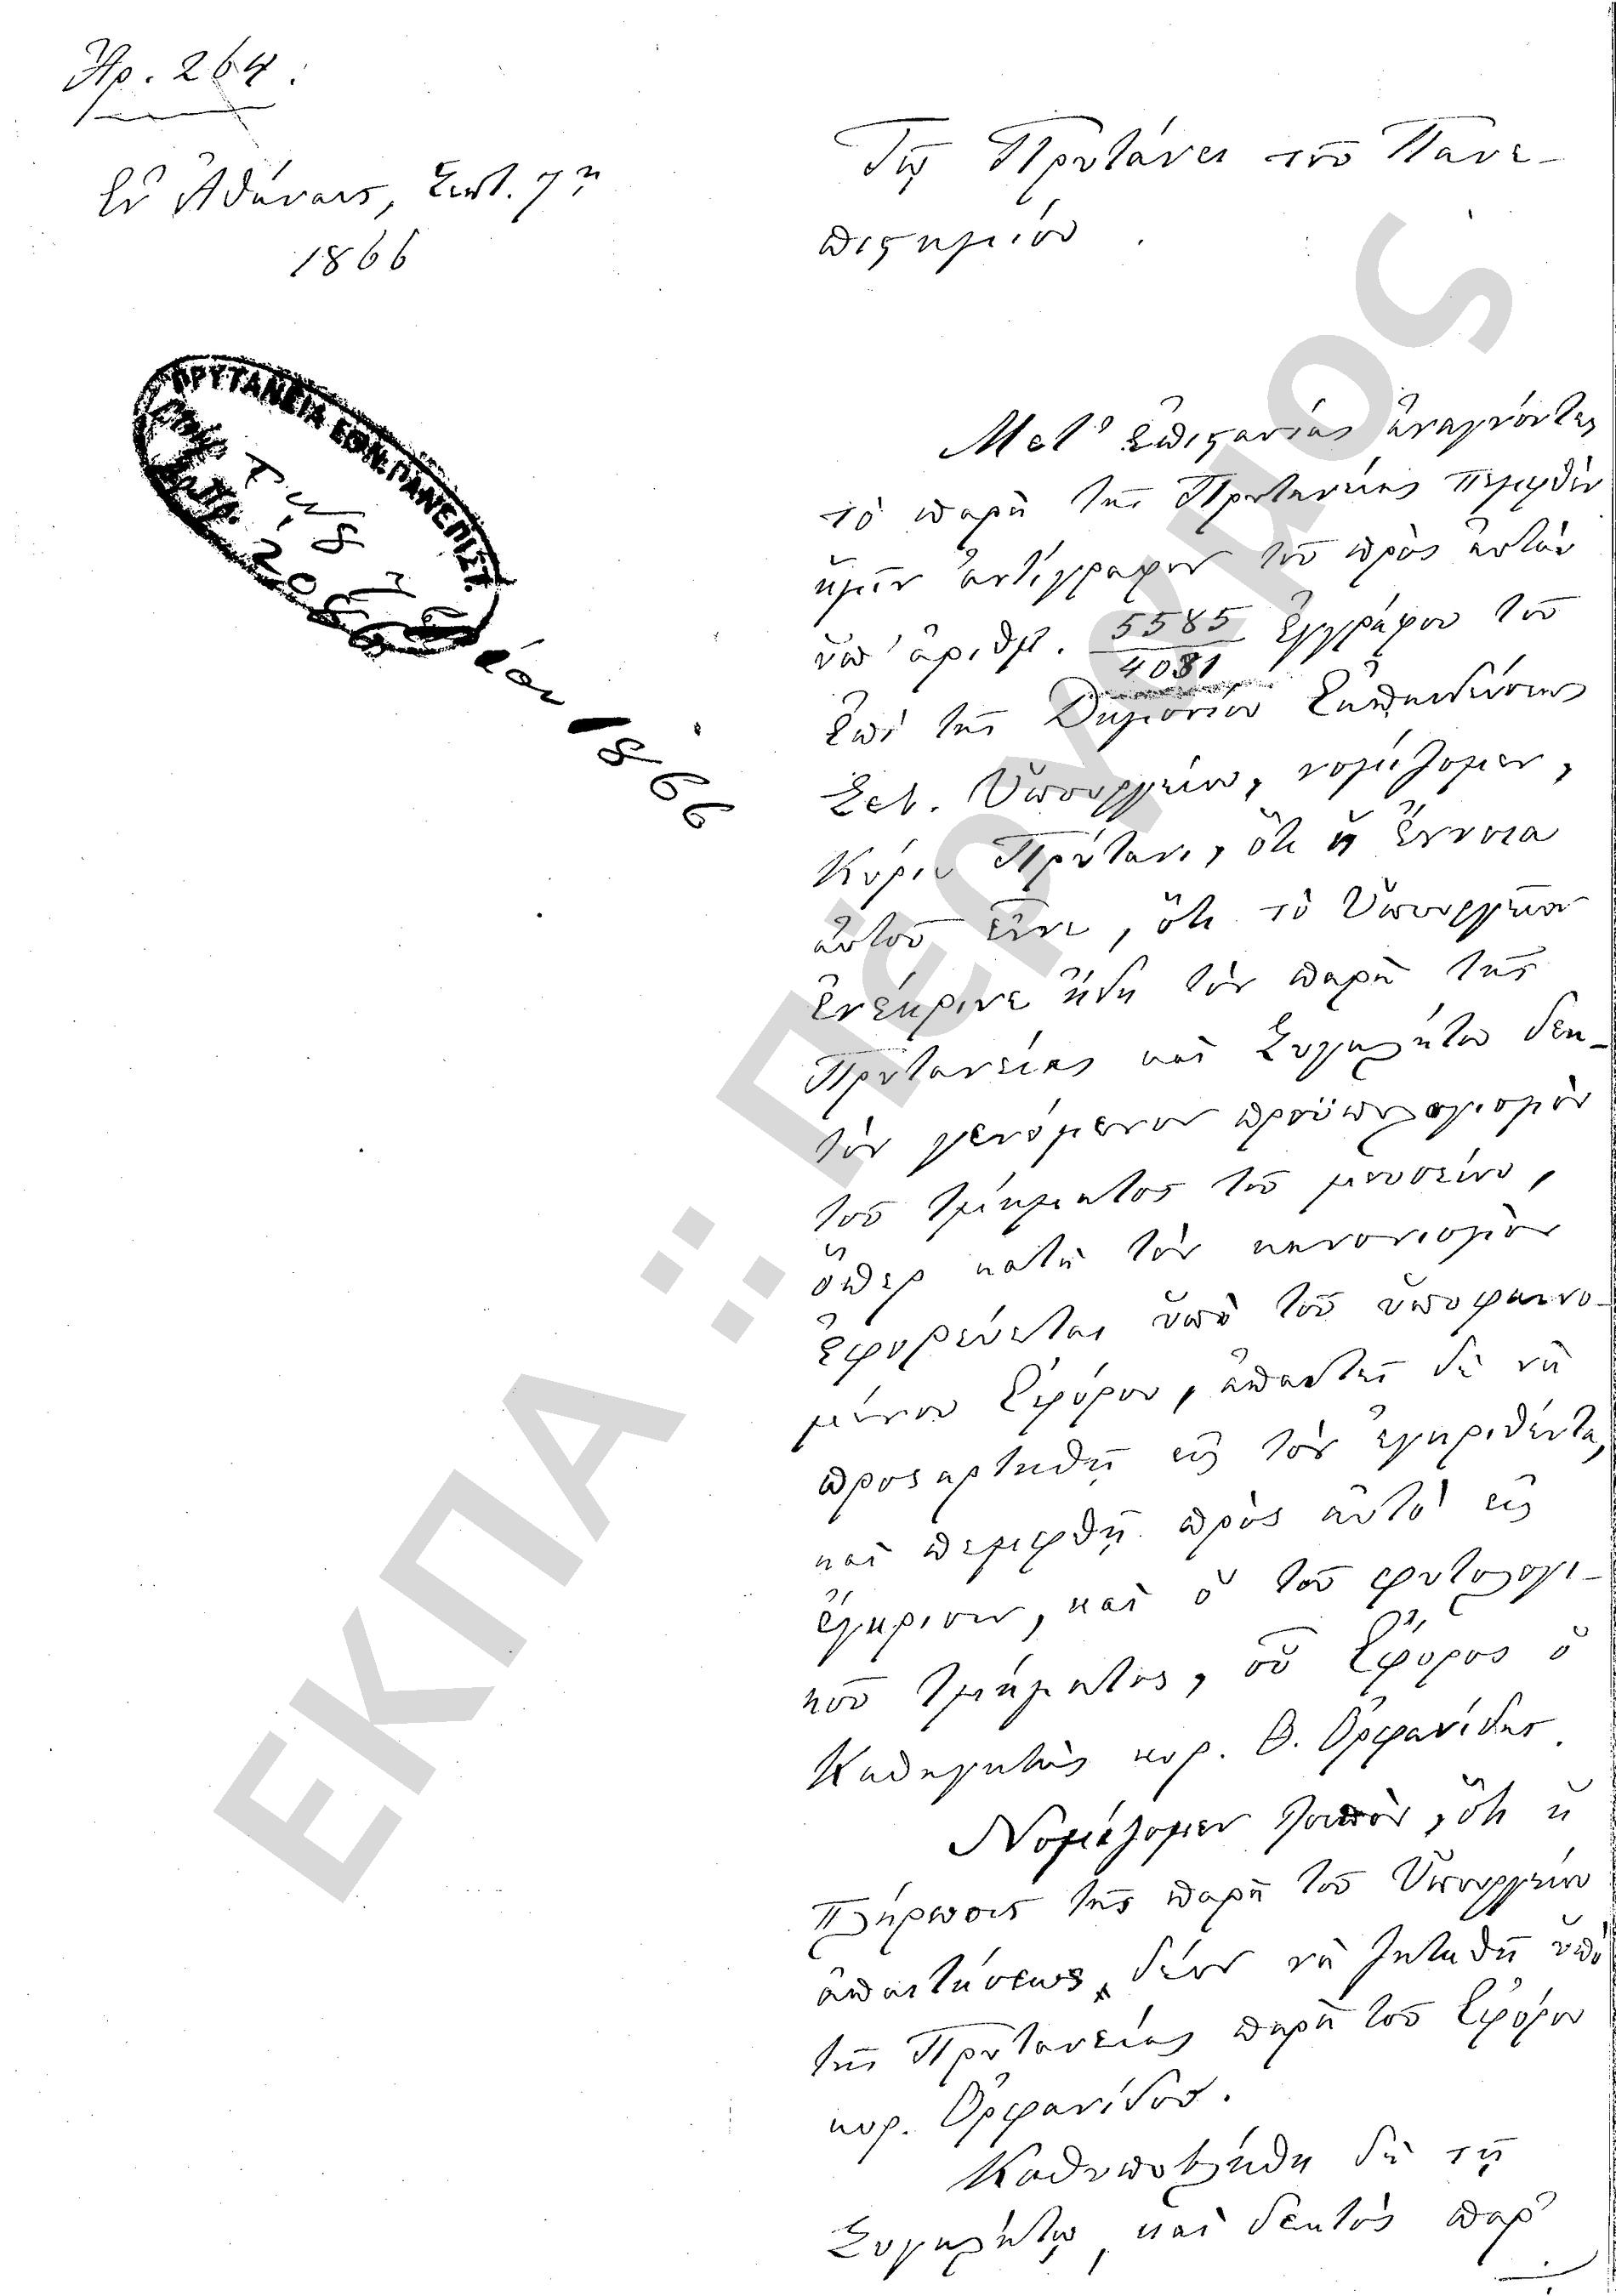 Ἀρ. 264.
Ἐν Ἀθήναις, Σεπτ. 7ῃ
1866
ΠΡΥΤΑΝΕΙΑ ΕΘΝ. ΠΑΝΕΠΙΣΤ.
1866
Τῷ Πρυτάνει τοῦ Πανε-
πιστημίου.
Μετ' ἐπιστασίας ἀναγνόντες
τὸ παρὰ τῆς Πρυτανείας πεμφθὲν
ἡμῖν ἀντίγραφον τοῦ πρὸς αὐτὴν
ὑπ' ἀριθμ. 5585/4081 ἐγγράφου τοῦ
ἐπὶ τῆς Δημοσίου Ἐκπαιδεύσεως
Σεβ. Ὑπουργείου, νομίζομεν,
Κύριε Πρύτανι, ὅτι ἡ ἔννοια
αὐτοῦ εἶναι, ὅτι τὸ Ὑπουργεῖον
ἐνέκρινε ἤδη τὸν παρὰ τῆς
Πρυτανείας καὶ Συγκλήτου δεκ-
τὸν γενόμενον προϋπολογισμὸν
τοῦ τμήματος τοῦ μουσείου,
ὅπερ κατὰ τὸν κανονισμὸν
ἐφορεύεται ὑπὸ τοῦ ὑποφαινο-
μένου Ἐφόρου, ἀπαιτεῖ δὲ νὰ
προσαρτηθῇ εἰς τὸν ἐγκριθέντα,
καὶ πεμφθῇ πρὸς αὐτὸ εἰς
ἔγκρισιν, καὶ ὁ τοῦ φυτολογι-
κοῦ τμήματος, οὗ Ἔφορος ὁ
Καθηγητὴς κυρ. Θ. Ὀρφανίδης.
Νομίζομεν λοιπὸν, ὅτι ἡ
πλήρωσις τῆς παρὰ τοῦ Ὑπουργείου
ἀπαιτήσεως δέον νὰ ζητηθῇ ὑπὸ
τῆς Πρυτανείας παρὰ τοῦ Ἐφόρου
κυρ. Ὀρφανίδου.
Καθυπεβλήθη δὲ τῇ
Συγκλήτῳ, καὶ δεκτὸς παρ'
ΕΚΠΑ :: Πέργαμος